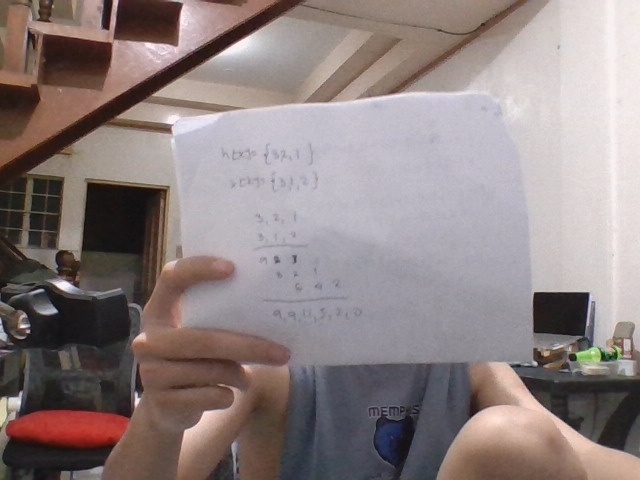 h[x]= {3,2,1}
x[k]= {3,1,2}
3, 2, 1
3, 1, 2
9 6 3
3 2 1
6 4 2
9, 9, 11, 5, 2, 0
MEMP S